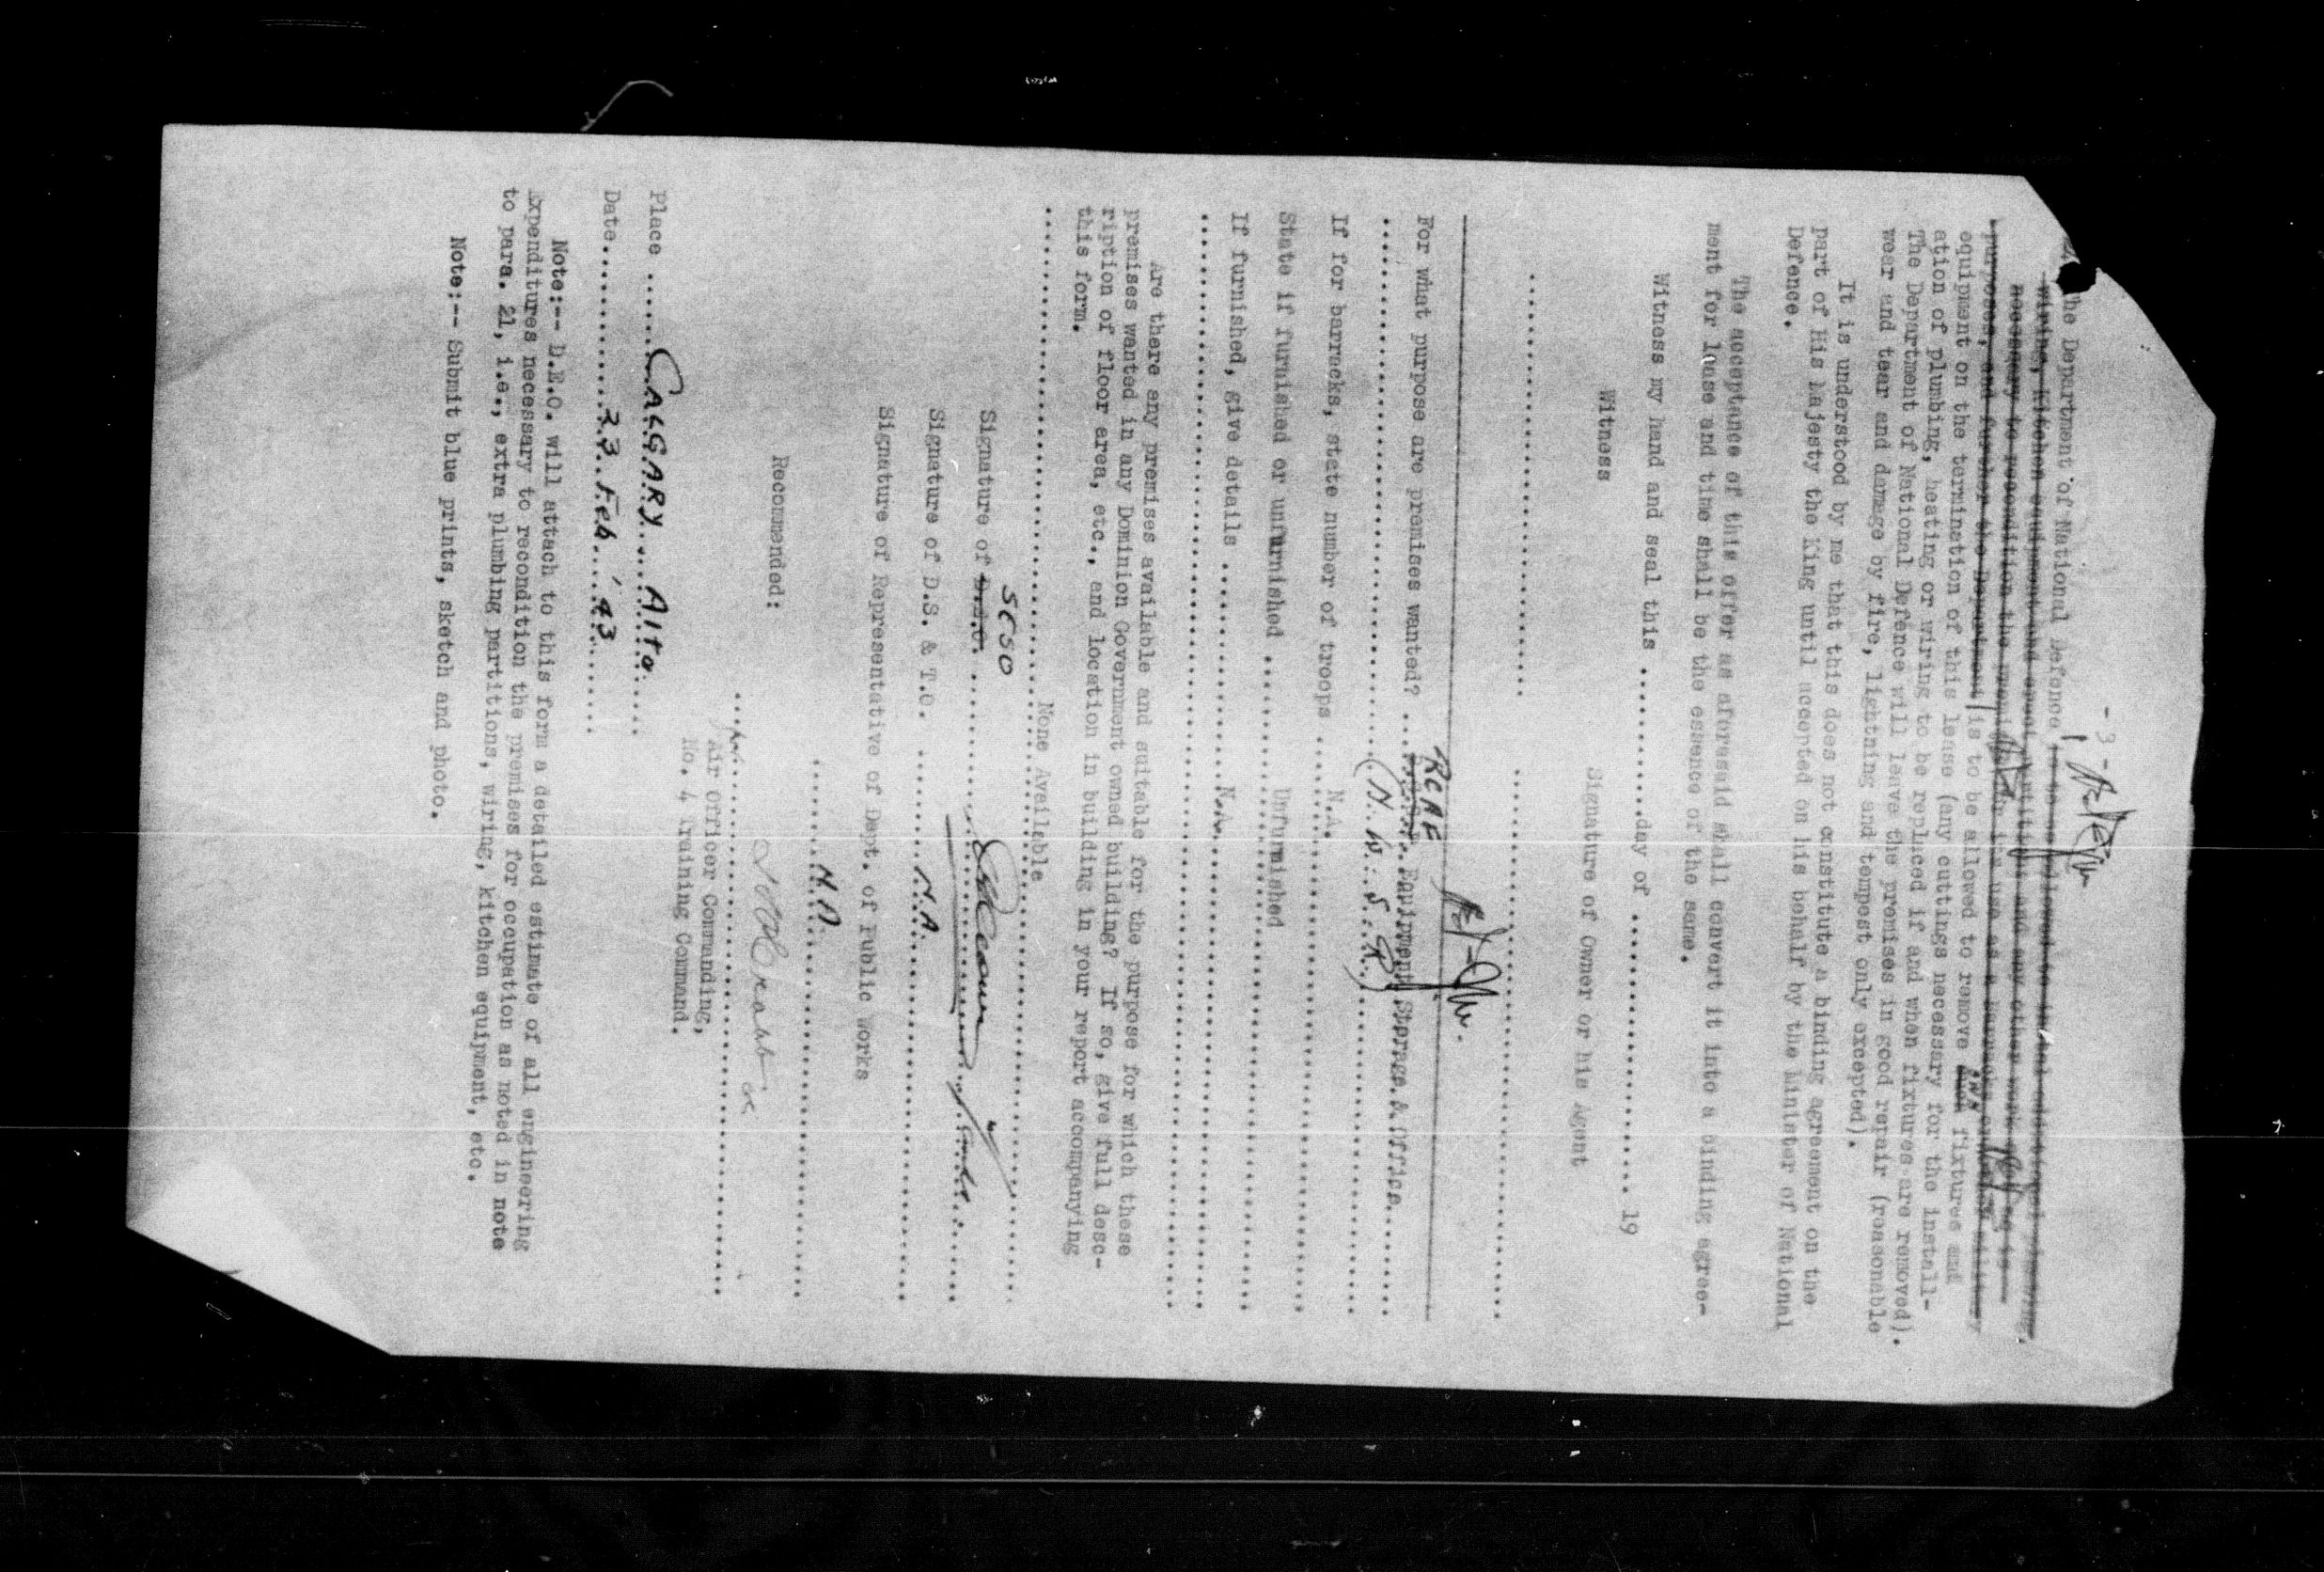 - 3 -
the Department of National Defence is to be allowed to install additional plumbing,
wiring, kitchen equipment and erect partitions and any other work
necessary to recondition the premises for use as a barracks or military
purposes, and further the Department is to be allowed to remove any fixtures and
equipment on the termination of this lease (any cuttings necessary for the install-
ation of plumbing, heating or wiring to be replaced if and when fixtures are removed).
The Department of National Defence will leave the premises in good repair (reasonable
wear and tear and damage by fire, lightning and tempest only excepted).
It is understood by me that this does not constitute a binding agreement on the
part of His Majesty the King until accepted on his behalf by the Minister of National
Defence.
The acceptance of this offer as aforesaid shall convert it into a binding agree-
ment for lease and time shall be the essence of the same.
Witness my hand and seal this ..............day of ........................... 19
Witness
Signature of Owner or his Agent
RCAF
For what purpose are premises wanted? ... Equipment Storage & Office
(N.W.S.R.)
If for barracks, state number of troops ...... N.A.
State if furnished or unfurnished ........ Unfurnished
If furnished, give details ............ N.A.
Are there any premises available and suitable for the purpose for which these
premises wanted in any Dominion Government owned building? If so, give full desc-
ription of floor area, etc., and location in building in your report accompanying
this form.
None Available
SESO
Signature of
Signature of D.S. & T.O. ........ N.A.
Signature of Representative of Dept. of Public Works
N.A.
Recommended:
for
Air Officer Commanding,
No. 4 Training Command.
Place ...... CALGARY .... Alta.
Date............ 23 Feb '43
Note:-- D.E.O. will attach to this form a detailed estimate of all engineering
Expenditures necessary to recondition the premises for occupation as noted in note
to para. 21, i.e., extra plumbing partitions, wiring, kitchen equipment, etc.
Note:-- Submit blue prints, sketch and photo.